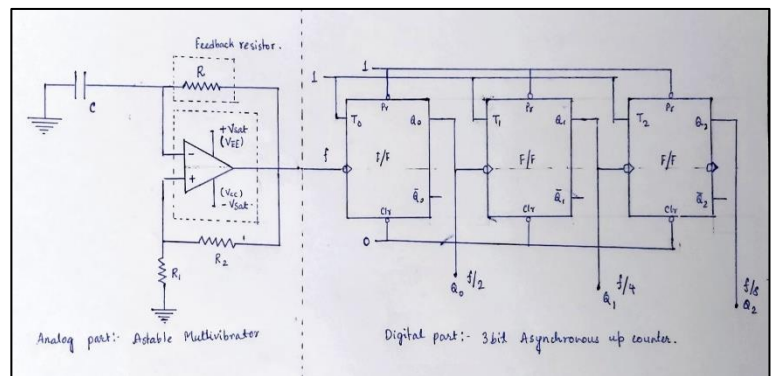 Feedback resistor.
R
C
+Vsat
(VEE)
-
+
(VCC)
-Vsat
R2
R1
Analog part:- Astable Multivibrator
f
1
1
Pr
T0
Q0
F/F
Q̄0
Clr
0
Q0 f/2
Pr
T1
Q1
F/F
Q̄1
Clr
Q1 f/4
Pr
T2
F/F
Q̄2
Clr
f/8
Q2
Digital part:- 3bit Asynchronous up counter.